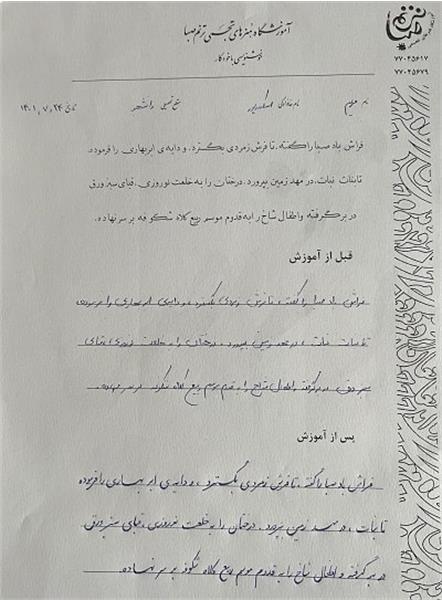 آموزشگاه هنرهای تجسمی ترنم صبا
خوشنویسی با خودکار
ترنم صبا
۷۷۰۲۵۶۱۷
۷۷۰۲۵۶۷۹
نام مریم نام خانوادگی سطح تحصیلی دانشجو تاریخ ۱۴۰۱,۷,۲۴
فراش باد صبا را گفته، تا فرش زمردی بگسترد، و دایه‌ی ابر بهاری را فرموده،
تا بنات نبات، در مهد زمین بپرورد. درختان را به خلعت نوروزی، قبای سبز ورق
در برگرفته و اطفال شاخ را به قدوم موسم ربیع کلاه شکوفه بر سر نهاده.
قبل از آموزش
فراش باد صبا را گفته، تا فرش زمردی بگسترد، و دایه‌ی ابر بهاری را فرموده
تا بنات نبات، در مهد زمین بپرورد. درختان را به خلعت نوروزی قبای
سبز ورق در برگرفته و اطفال شاخ را به قدوم موسم ربیع کلاه شکوفه بر سر نهاده.
پس از آموزش
فراش باد صبا را گفته، تا فرش زمردی بگسترد، و دایه‌ی ابر بهاری را فرموده
تا بنات، در مهد زمین بپرورد. درختان را به خلعت نوروزی، قبای سبز ورق
در برگرفته و اطفال شاخ را به قدوم موسم ربیع کلاه شکوفه بر سر نهاده